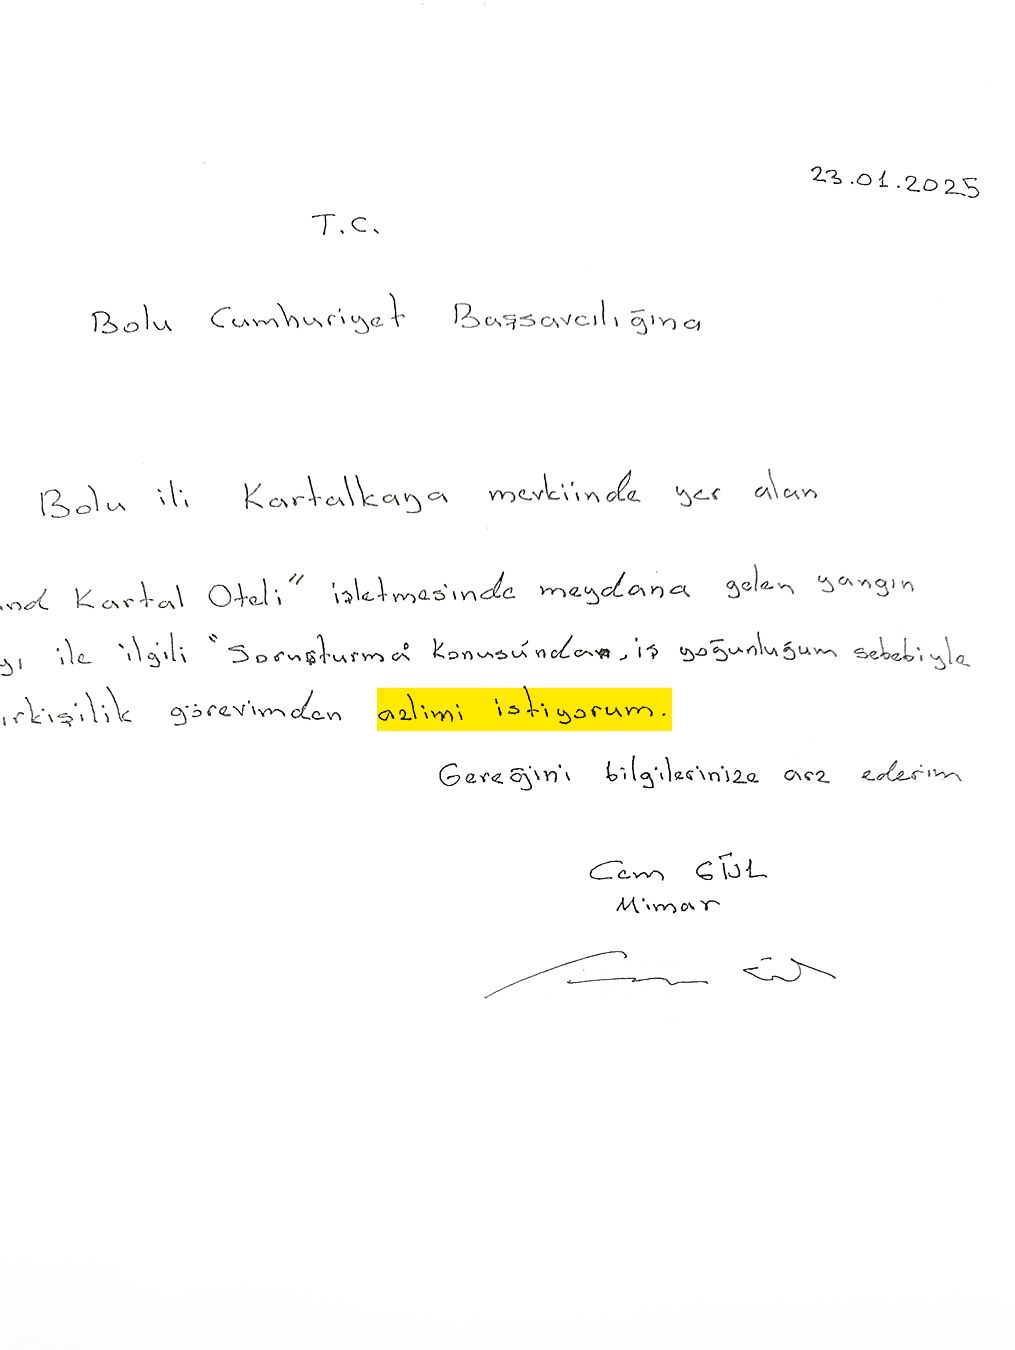 23.01.2025
T.C.
Bolu Cumhuriyet Başsavcılığına
Bolu ili Kartalkaya mevkiinde yer alan
and Kartal Oteli" işletmesinde meydana gelen yangın
yı ile ilgili "Soruşturma" konusundan, iş yoğunluğum sebebiyle
irkişilik görevimden azlimi istiyorum.
Gereğini bilgilerinize arz ederim
Cem GÜL
Mimar